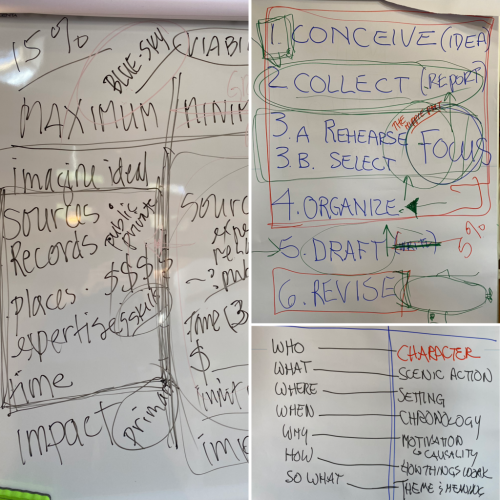 15%
BLUE SKY
VIABI
MAXIMUM
MINIM
imagine ideal
Sources
Records
public
private
places
$$$$
expertise
issues
time
Impact
primary
Sourc
Time (3
$
1. CONCEIVE (IDEA
2 COLLECT (.REPORT)
3. A REHEARSE
3. B. SELECT
THE
FOCUS
4. ORGANIZE
5. DRAFT
5%
6. REVISE
WHO CHARACTER
WHAT SCENIC ACTION
WHERE SETTING
WHEN CHRONOLOGY
WHY MOTIVATION
& CAUSALITY
HOW HOW THINGS WORK
SO WHAT THEME & MEANING